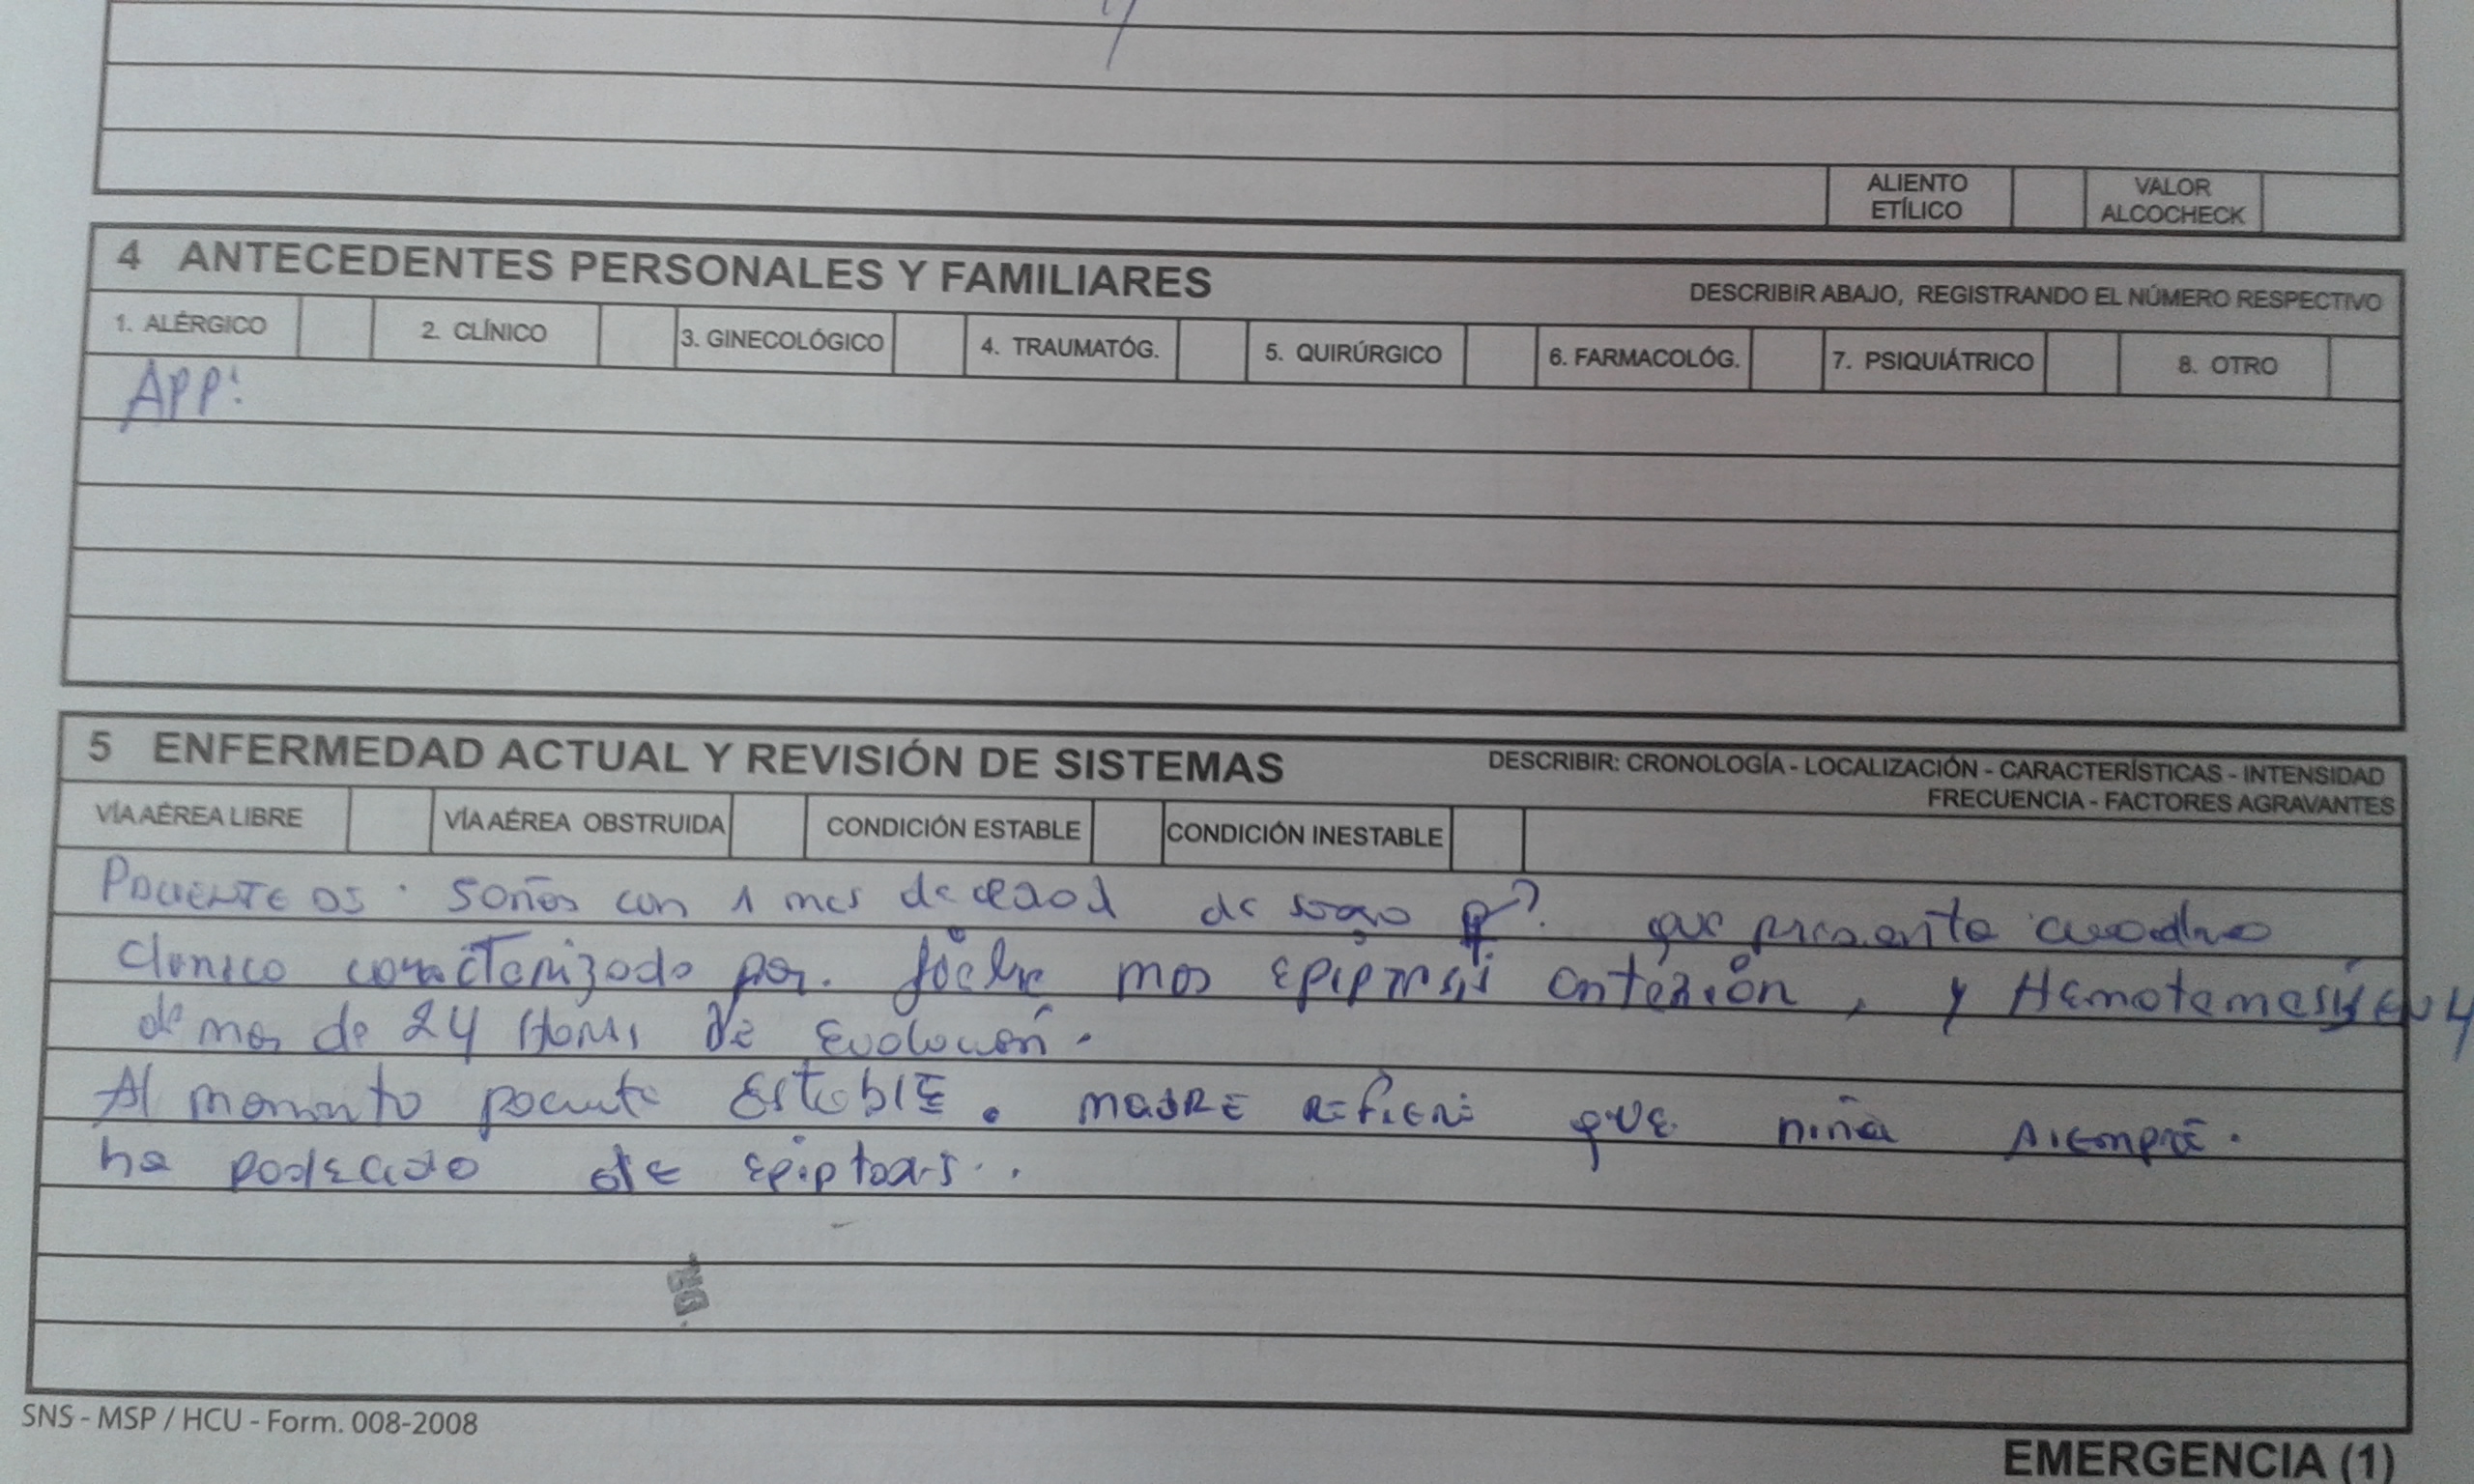 ALIENTO ETÍLICO VALOR ALCOCHECK
4 ANTECEDENTES PERSONALES Y FAMILIARES DESCRIBIR ABAJO, REGISTRANDO EL NÚMERO RESPECTIVO
1. ALÉRGICO 2. CLÍNICO 3. GINECOLÓGICO 4. TRAUMATÓG. 5. QUIRÚRGICO 6. FARMACOLÓG. 7. PSIQUIÁTRICO 8. OTRO
APP:
5 ENFERMEDAD ACTUAL Y REVISIÓN DE SISTEMAS DESCRIBIR: CRONOLOGÍA - LOCALIZACIÓN - CARACTERÍSTICAS - INTENSIDAD
FRECUENCIA - FACTORES AGRAVANTES
VÍA AÉREA LIBRE VÍA AÉREA OBSTRUIDA CONDICIÓN ESTABLE CONDICIÓN INESTABLE
PACIENTE DE 5 años con 1 mes de edad de sexo que presenta cuadro
clinico caracterizado por. mas
de mas de 24 Horas DE Evolución.
Al momento paciente EstablE. MADRE REFIERE QUE niña siEmprE.
ha padEcido dE
SNS - MSP / HCU - Form. 008-2008
EMERGENCIA (1)